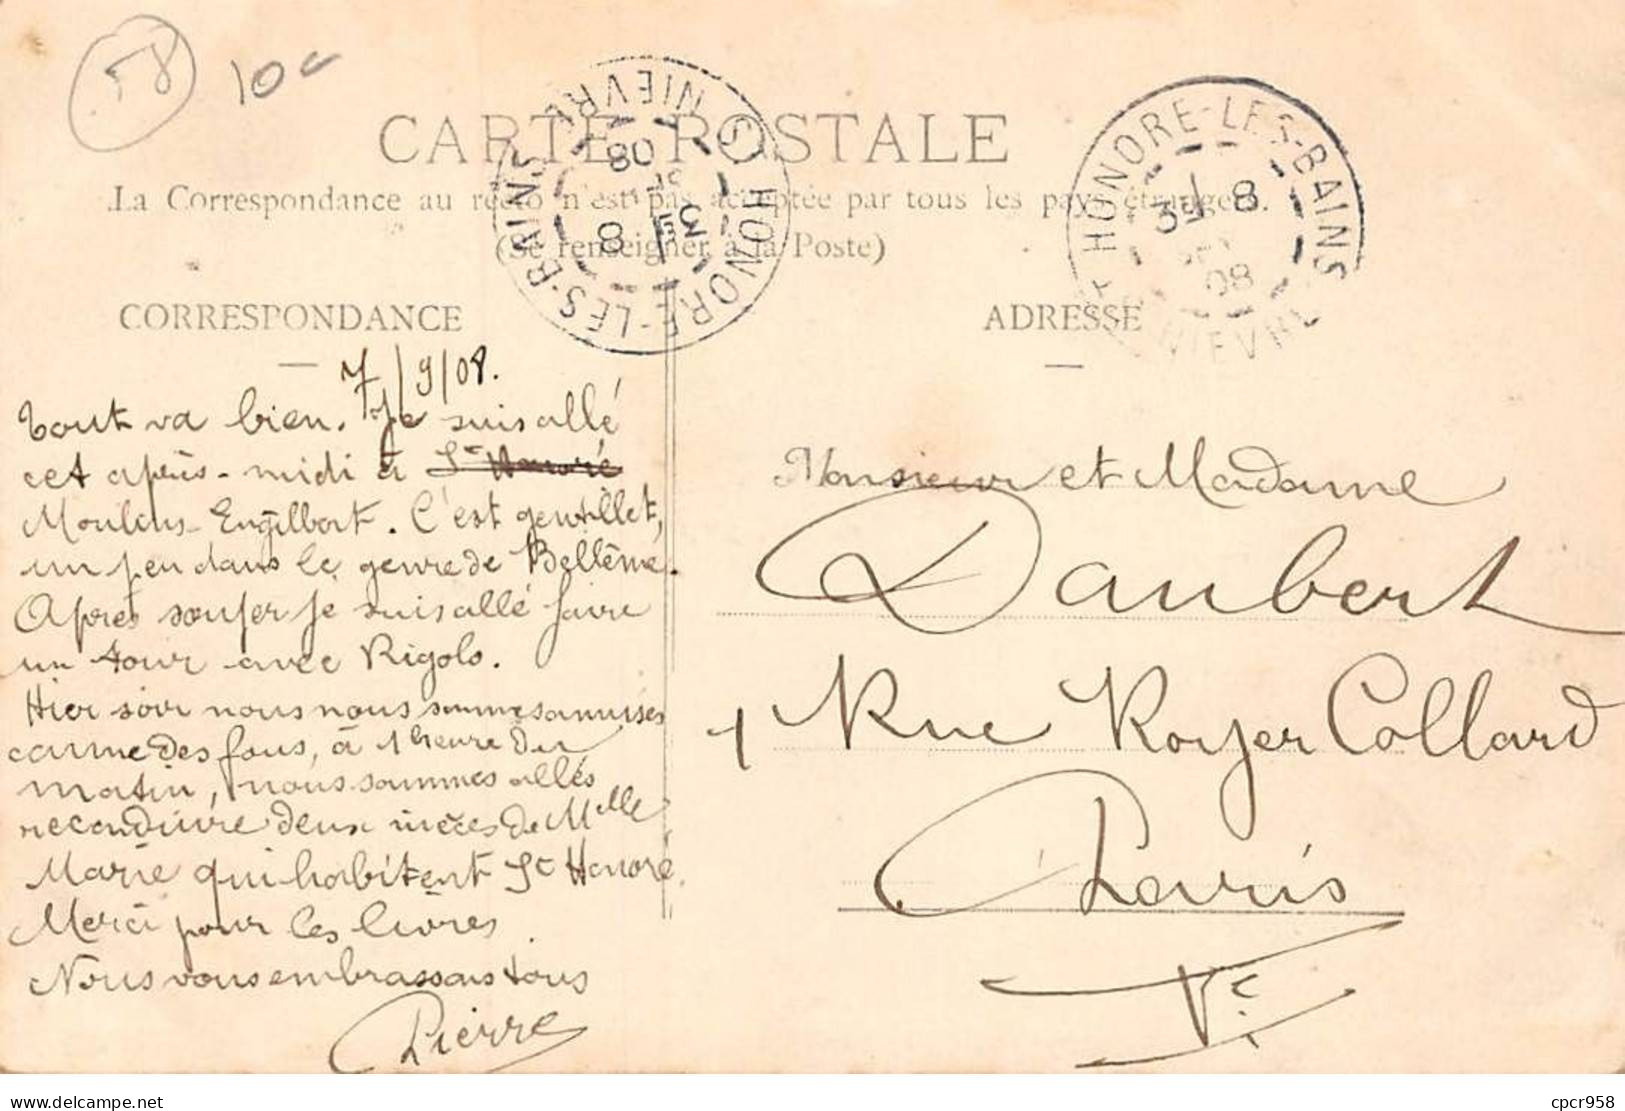 58
10c
CARTE POSTALE
La Correspondance au recto n'est pas acceptée par tous les pays étrangers.
(Se renseigner à la Poste)
ST HONORE-LES-BAINS NIEVRE
3E 8
SEPT
08
ST HONORE-LES-BAINS
3E 8
08
NIEVRE
CORRESPONDANCE
7/9/08.
Tout va bien. Je suis allé
cet après-midi à St Honoré
Moulins-Engilbert. C'est gentillet,
un peu dans le genre de Bellême.
Après souper je suis allé faire
un tour avec Rigolo.
Hier soir nous nous sommes amusés
comme des fous, à 1 heure du
matin, nous sommes allés
reconduire deux nièces de Melle
Marie qui habitent St Honoré.
Merci pour les livres
Nous vous embrassons tous
Pierre
ADRESSE
Monsieur et Madame
Daubert
1 Rue Royer Collard
Paris
Ve
delcampe.net
cpcr958